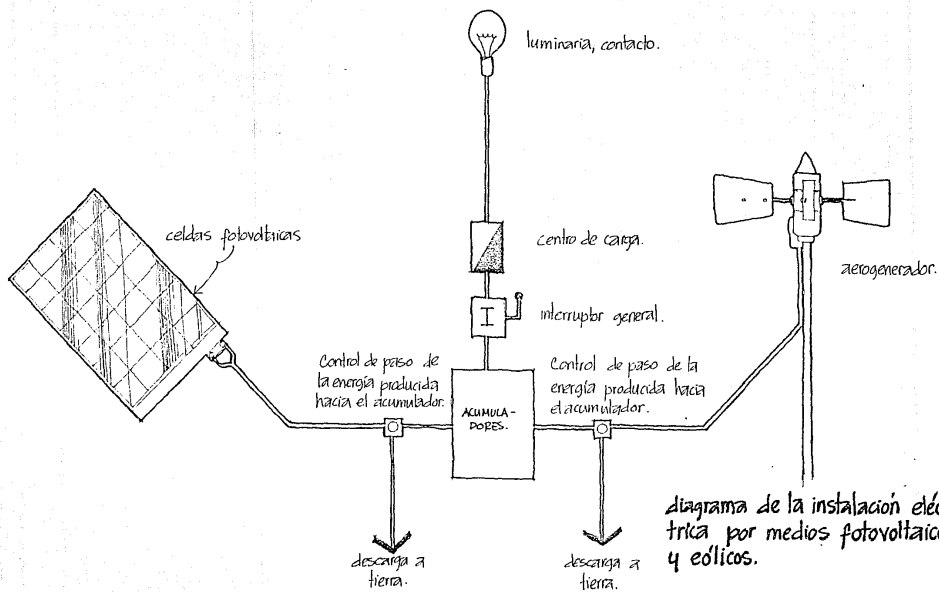 luminaria, contacto.
celdas fotovoltaicas
centro de carga.
aerogenerador.
I
interruptor general.
Control de paso de
la energía producida
hacia el acumulador.
Control de paso de la
energía producida hacia
el acumulador.
ACUMULA-
DORES.
descarga a
tierra.
descarga a
tierra.
diagrama de la instalación eléc
trica por medios fotovoltaic
y eólicos.